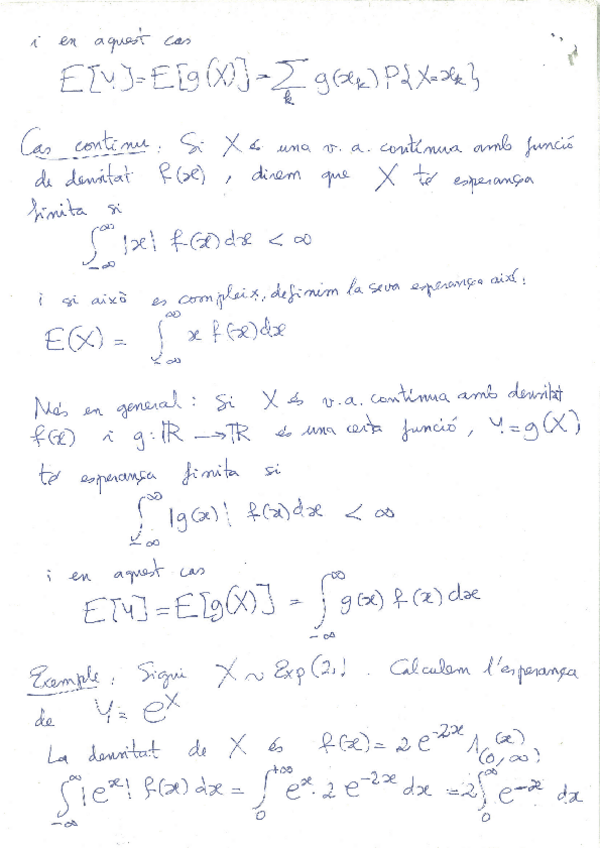 i en aquest cas
E[Y] = E[g(X)] = ∑_k g(x_k) P{X=x_k}
Cas continu: Si X és una v.a. contínua amb funció
de densitat f(x), direm que X té esperança
finita si
∫_{-∞}^{∞} |x| f(x) dx < ∞
i si això es compleix, definim la seva esperança així:
E(X) = ∫_{-∞}^{∞} x f(x) dx
Més en general: Si X és v.a. contínua amb densitat
f(x) i g: ℝ → ℝ és una certa funció, Y = g(X)
té esperança finita si
∫_{-∞}^{∞} |g(x)| f(x) dx < ∞
i en aquest cas
E[Y] = E[g(X)] = ∫_{-∞}^{∞} g(x) f(x) dx
Exemple: Sigui X ~ Exp(2). Calculem l'esperança
de Y = e^X
La densitat de X és f(x) = 2 e^{-2x} 1_{(0,∞)}(x)
∫_{-∞}^{∞} |e^x| f(x) dx = ∫_0^{+∞} e^x · 2 e^{-2x} dx = 2 ∫_0^{∞} e^{-x} dx